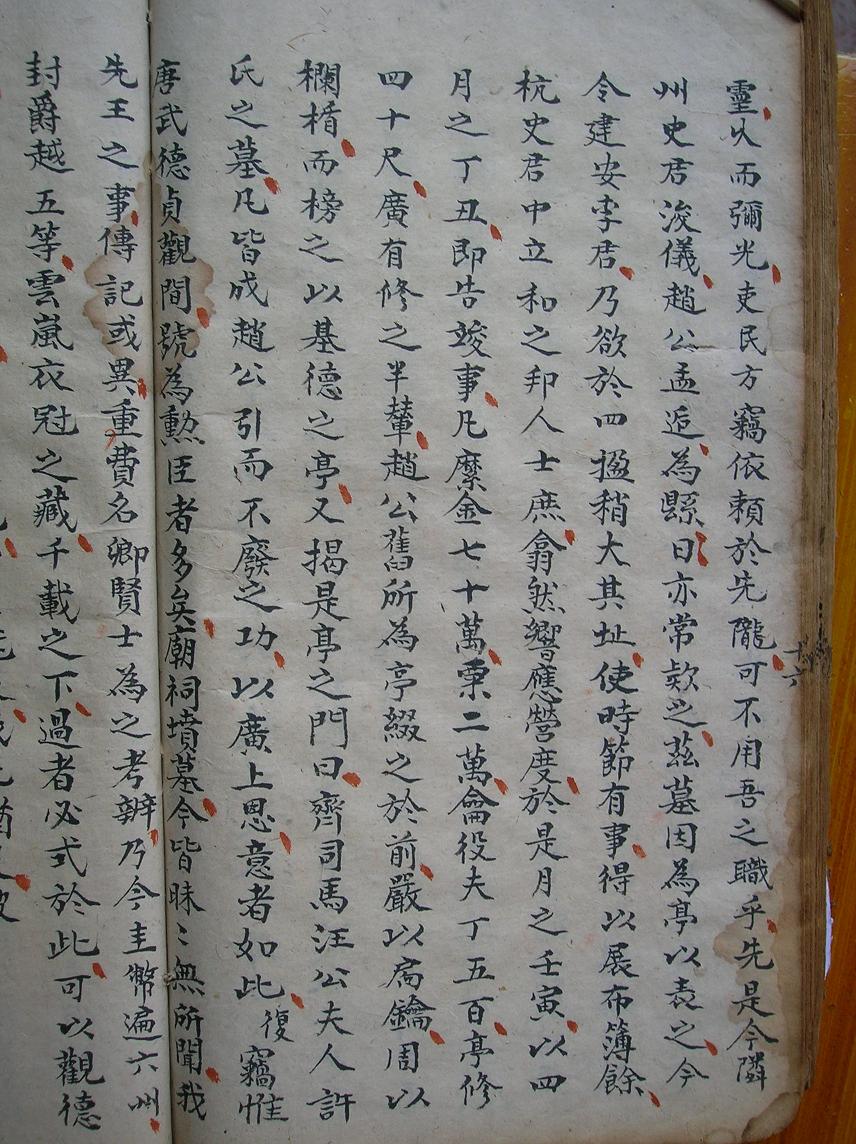 靈以而彌光吏民方竊依賴於先隴可不用吾之職乎先是今隣
州史君浚儀趙公孟逅為縣日亦常欵之茲墓因為亭以表之今
令建安李君乃欲於四楹稍大其址使時節有事得以展布簿餘
杭史君中立和之卭人士庶翕然響應營度於是月之壬寅以四
月之丁丑即告竣事凡縻金七十萬粟二萬侖役夫丁五百亭修
四十尺廣有修之半輦趙公舊所為亭綴之於前嚴以扃鑰周以
欄楯而榜之以基德之亭又揭是亭之門曰齊司馬汪公夫人許
氏之墓凡皆成趙公引而不廢之功以廣上恩意者如此復竊惟
唐武德貞觀間號為勲臣者多矣廟祠墳墓今皆昧〻無所聞我
先王之事傳記或異重費名卿賢士為之考辨乃今圭幣遍六州
封爵越五等雲嵐衣冠之藏千載之下過者必式於此可以觀德
十六